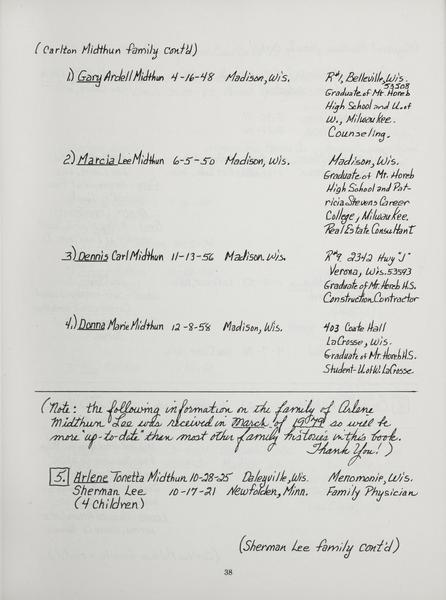 (Carlton Midthun family cont'd)
1.) Gary Ardell Midthun 4-16-48 Madison, Wis. R#1, Belleville, Wis.
53508
Graduate of Mt. Horeb
High School and U. of
W., Milwaukee.
Counseling.
2.) Marcia Lee Midthun 6-5-50 Madison, Wis. Madison, Wis.
Graduate of Mt. Horeb
High School and Pat-
ricia Stevens Career
College, Milwaukee.
Real Estate Consultant
3.) Dennis Carl Midthun 11-13-56 Madison. Wis. R#9, 2342 Hwy "J"
Verona, Wis. 53593
Graduate of Mt. Horeb H.S.
Construction Contractor
4.) Donna Marie Midthun 12-8-58 Madison, Wis. 403 Coate Hall
LaCrosse, Wis.
Graduate of Mt. Horeb H.S.
Student-U. of W. LaCrosse
(Note: the following information on the family of Arlene
Midthun Lee was received in March of 1979 so will be
more "up-to-date" then most other family histories in this book.
Thank You!)
5. Arlene Tonetta Midthun 10-28-25 Daleyville, Wis. Menomonie, Wis.
Sherman Lee 10-17-21 Newfolden, Minn. Family Physician
(4 Children)
(Sherman Lee family cont'd)
38